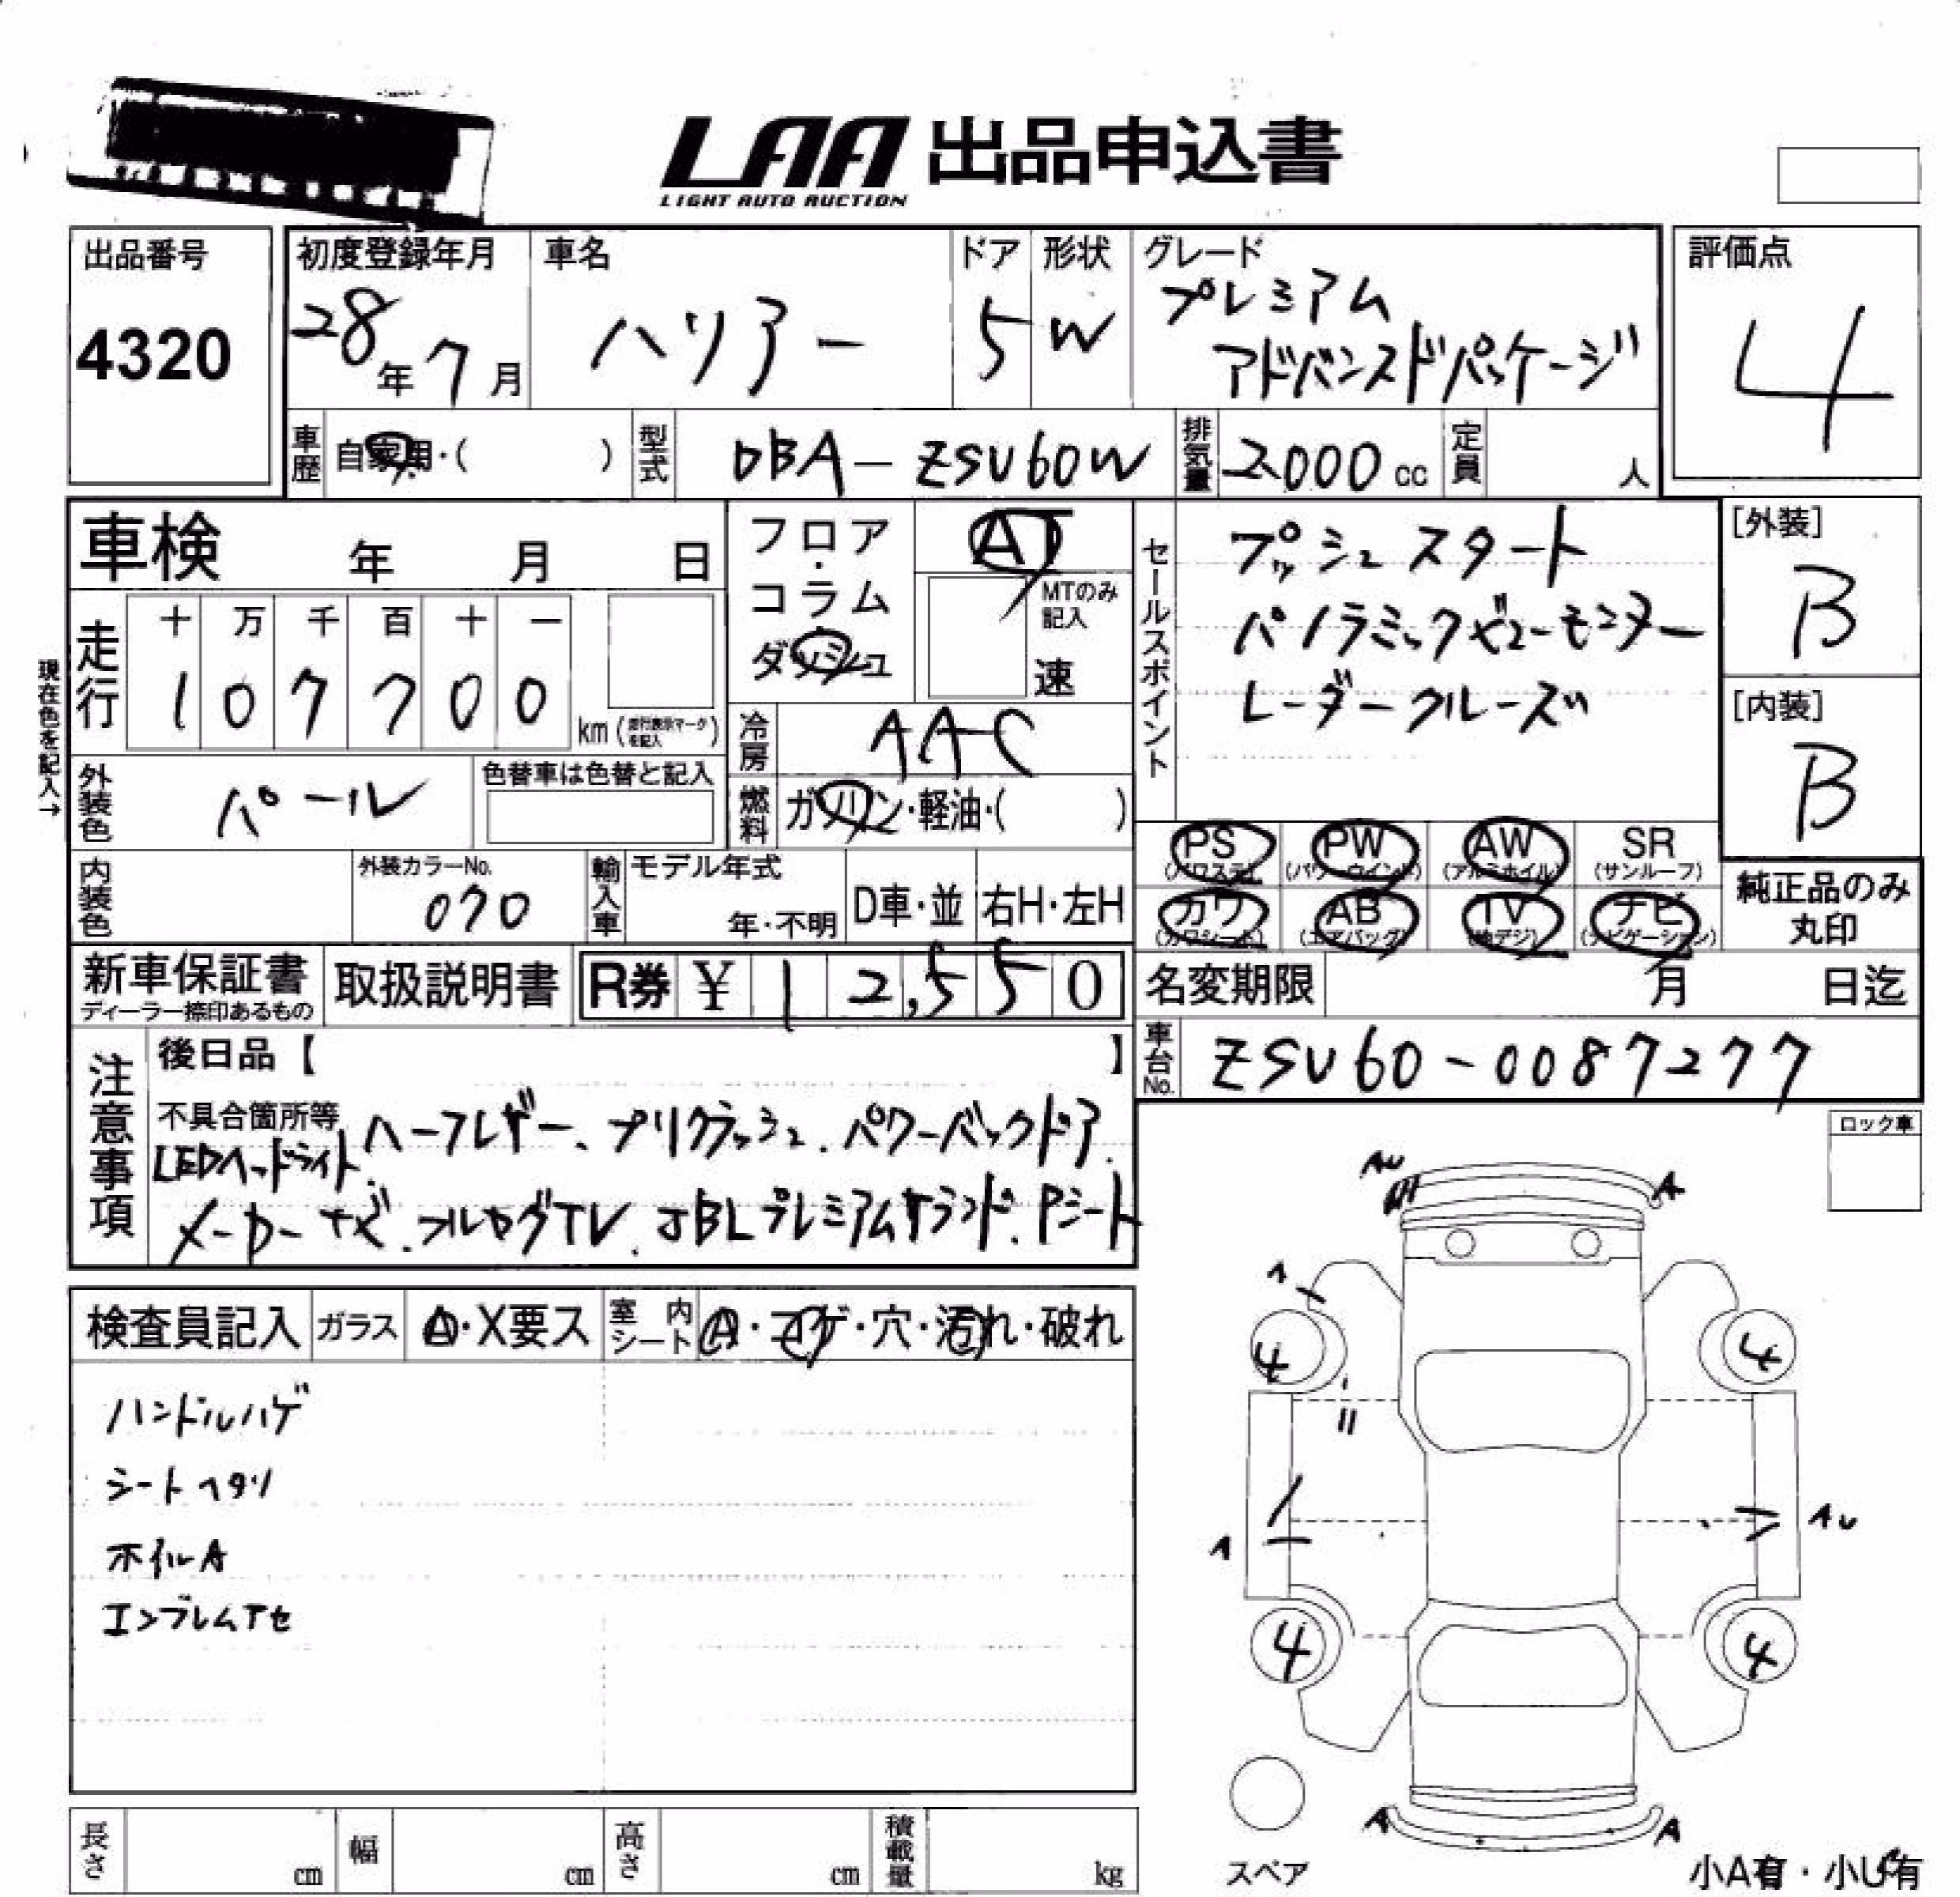 LAA 出品申込書
LIGHT AUTO AUCTION
出品番号
4320
初度登録年月
28年7月
車名
ハリアー
ドア
5
形状
W
グレード
プレミアム
アドバンスドパッケージ
評価点
4
車歴 自家用・( )
型式 DBA-ZSU60W
排気量 2000cc
定員 人
車検 年 月 日
フロア・コラム
ダッシュ
AT
MTのみ記入
速
セールスポイント
プッシュスタート
パノラミックビューモニター
レーダークルーズ
[外装]
B
[内装]
B
現在色を記入→
走行
十 万 千 百 十 一
1 0 7 7 0 0
km(走行表示マークを記入)
冷房 AAC
外装色 パール
色替車は色替と記入
燃料 ガソリン・軽油・( )
PS PW AW SR
(パワステ) (パワーウインド) (アルミホイル) (サンルーフ)
カワ AB TV ナビ
(カワシート) (エアバッグ) (地デジ) (ナビゲーション)
純正品のみ
丸印
内装色
外装カラーNo.
070
輸入車 モデル年式
年・不明
D車・並 右H・左H
新車保証書
ディーラー捺印あるもの
取扱説明書
R券 ¥ 12,550
名変期限 月 日迄
車台No. ZSU60-0087277
注意事項
後日品【 】
不具合箇所等 ハーフレザー、プリクラッシュ、パワーバックドア、
LEDヘッドライト、
メーカーナビ、フルセグTV、JBLプレミアムサウンド、Pシート
ロック車
検査員記入 ガラス A・X要ス 室内シート A・コゲ・穴・汚れ・破れ
ハンドルハゲ
シートヘタリ
ホイルA
エンブレムアセ
AU
A
A
4
4
A
AU
4
4
A
A
スペア
小A有・小U有
長さ cm 幅 cm 高さ cm 積載量 kg